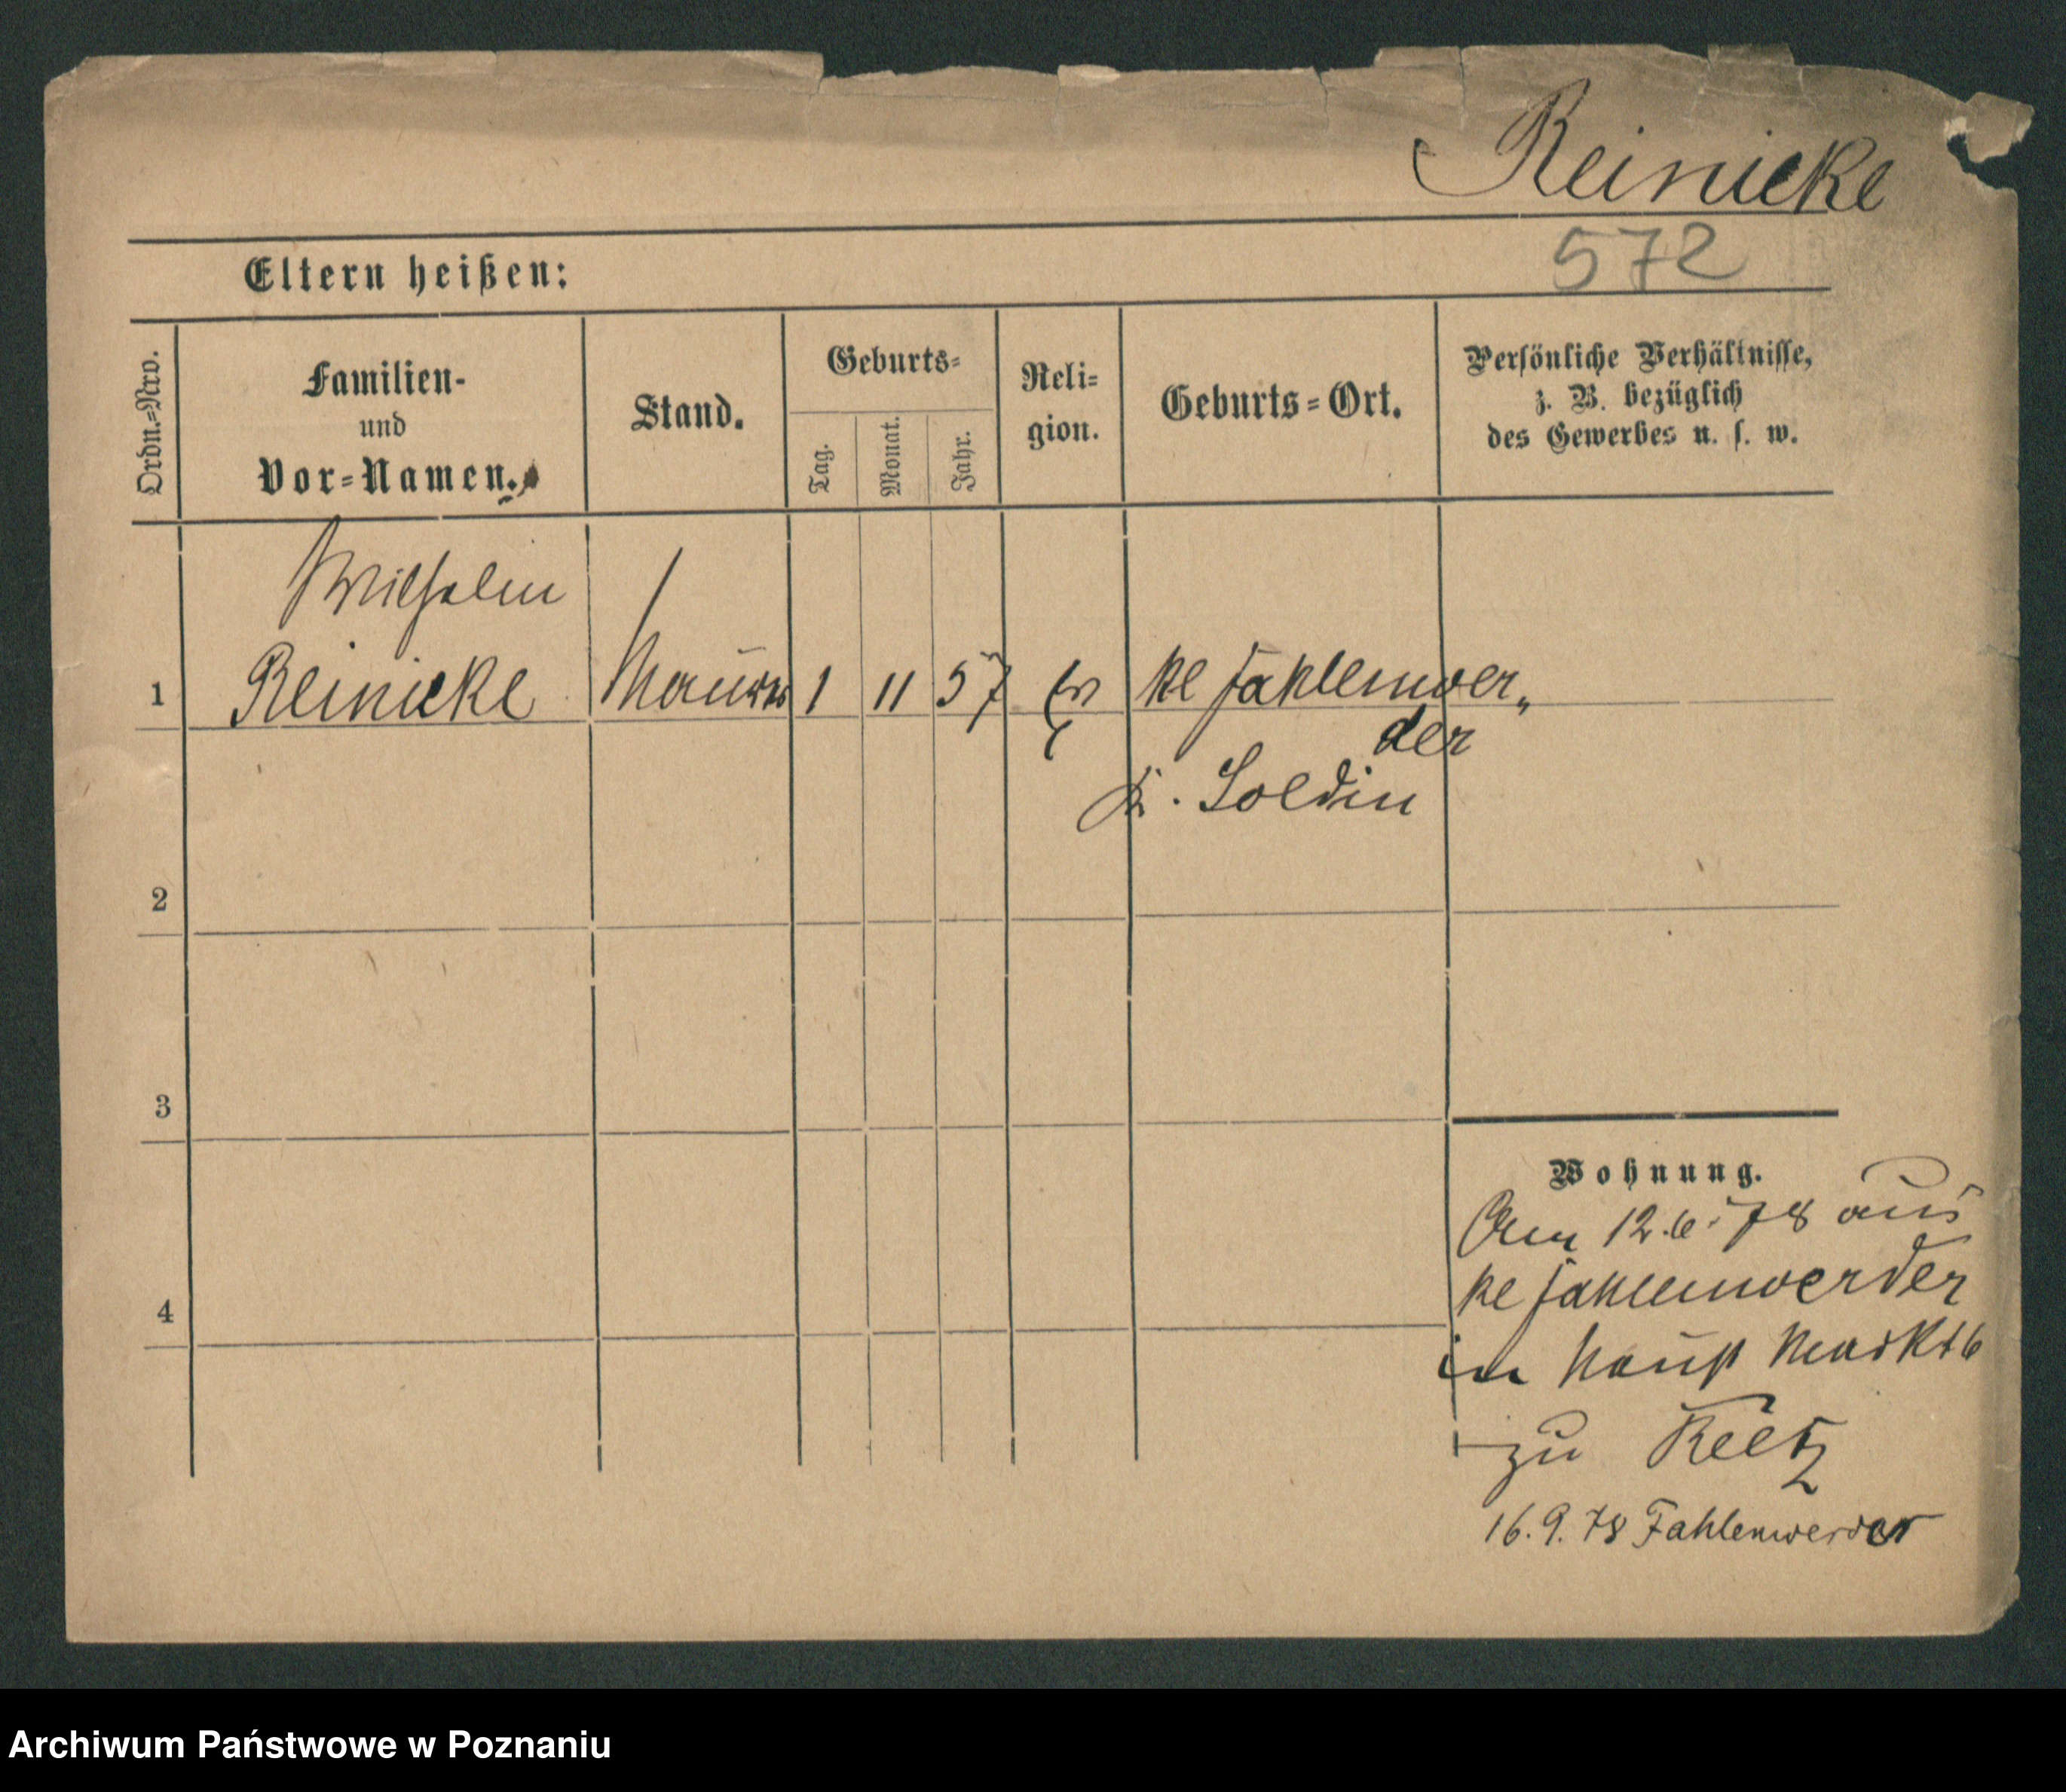 Reinicke
572
Eltern heißen:
Ordn.-Nro.
Familien-
und
Vor-Namen.
Stand.
Geburts-
Tag.
Monat.
Jahr.
Reli-
gion.
Geburts-Ort.
Persönliche Verhältnisse,
z. B. bezüglich
des Gewerbes u. s. w.
Wilhelm
1 Reinicke Maurer 1 11 57 Ev Kl Fahlenwer„
der
K. Soldin
2
3
4
Wohnung.
Am 12.6.78 aus
Kl Fahlenwerder
in Markt 6
zu Reetz
16.9.78 Fahlenwerder
Archiwum Państwowe w Poznaniu